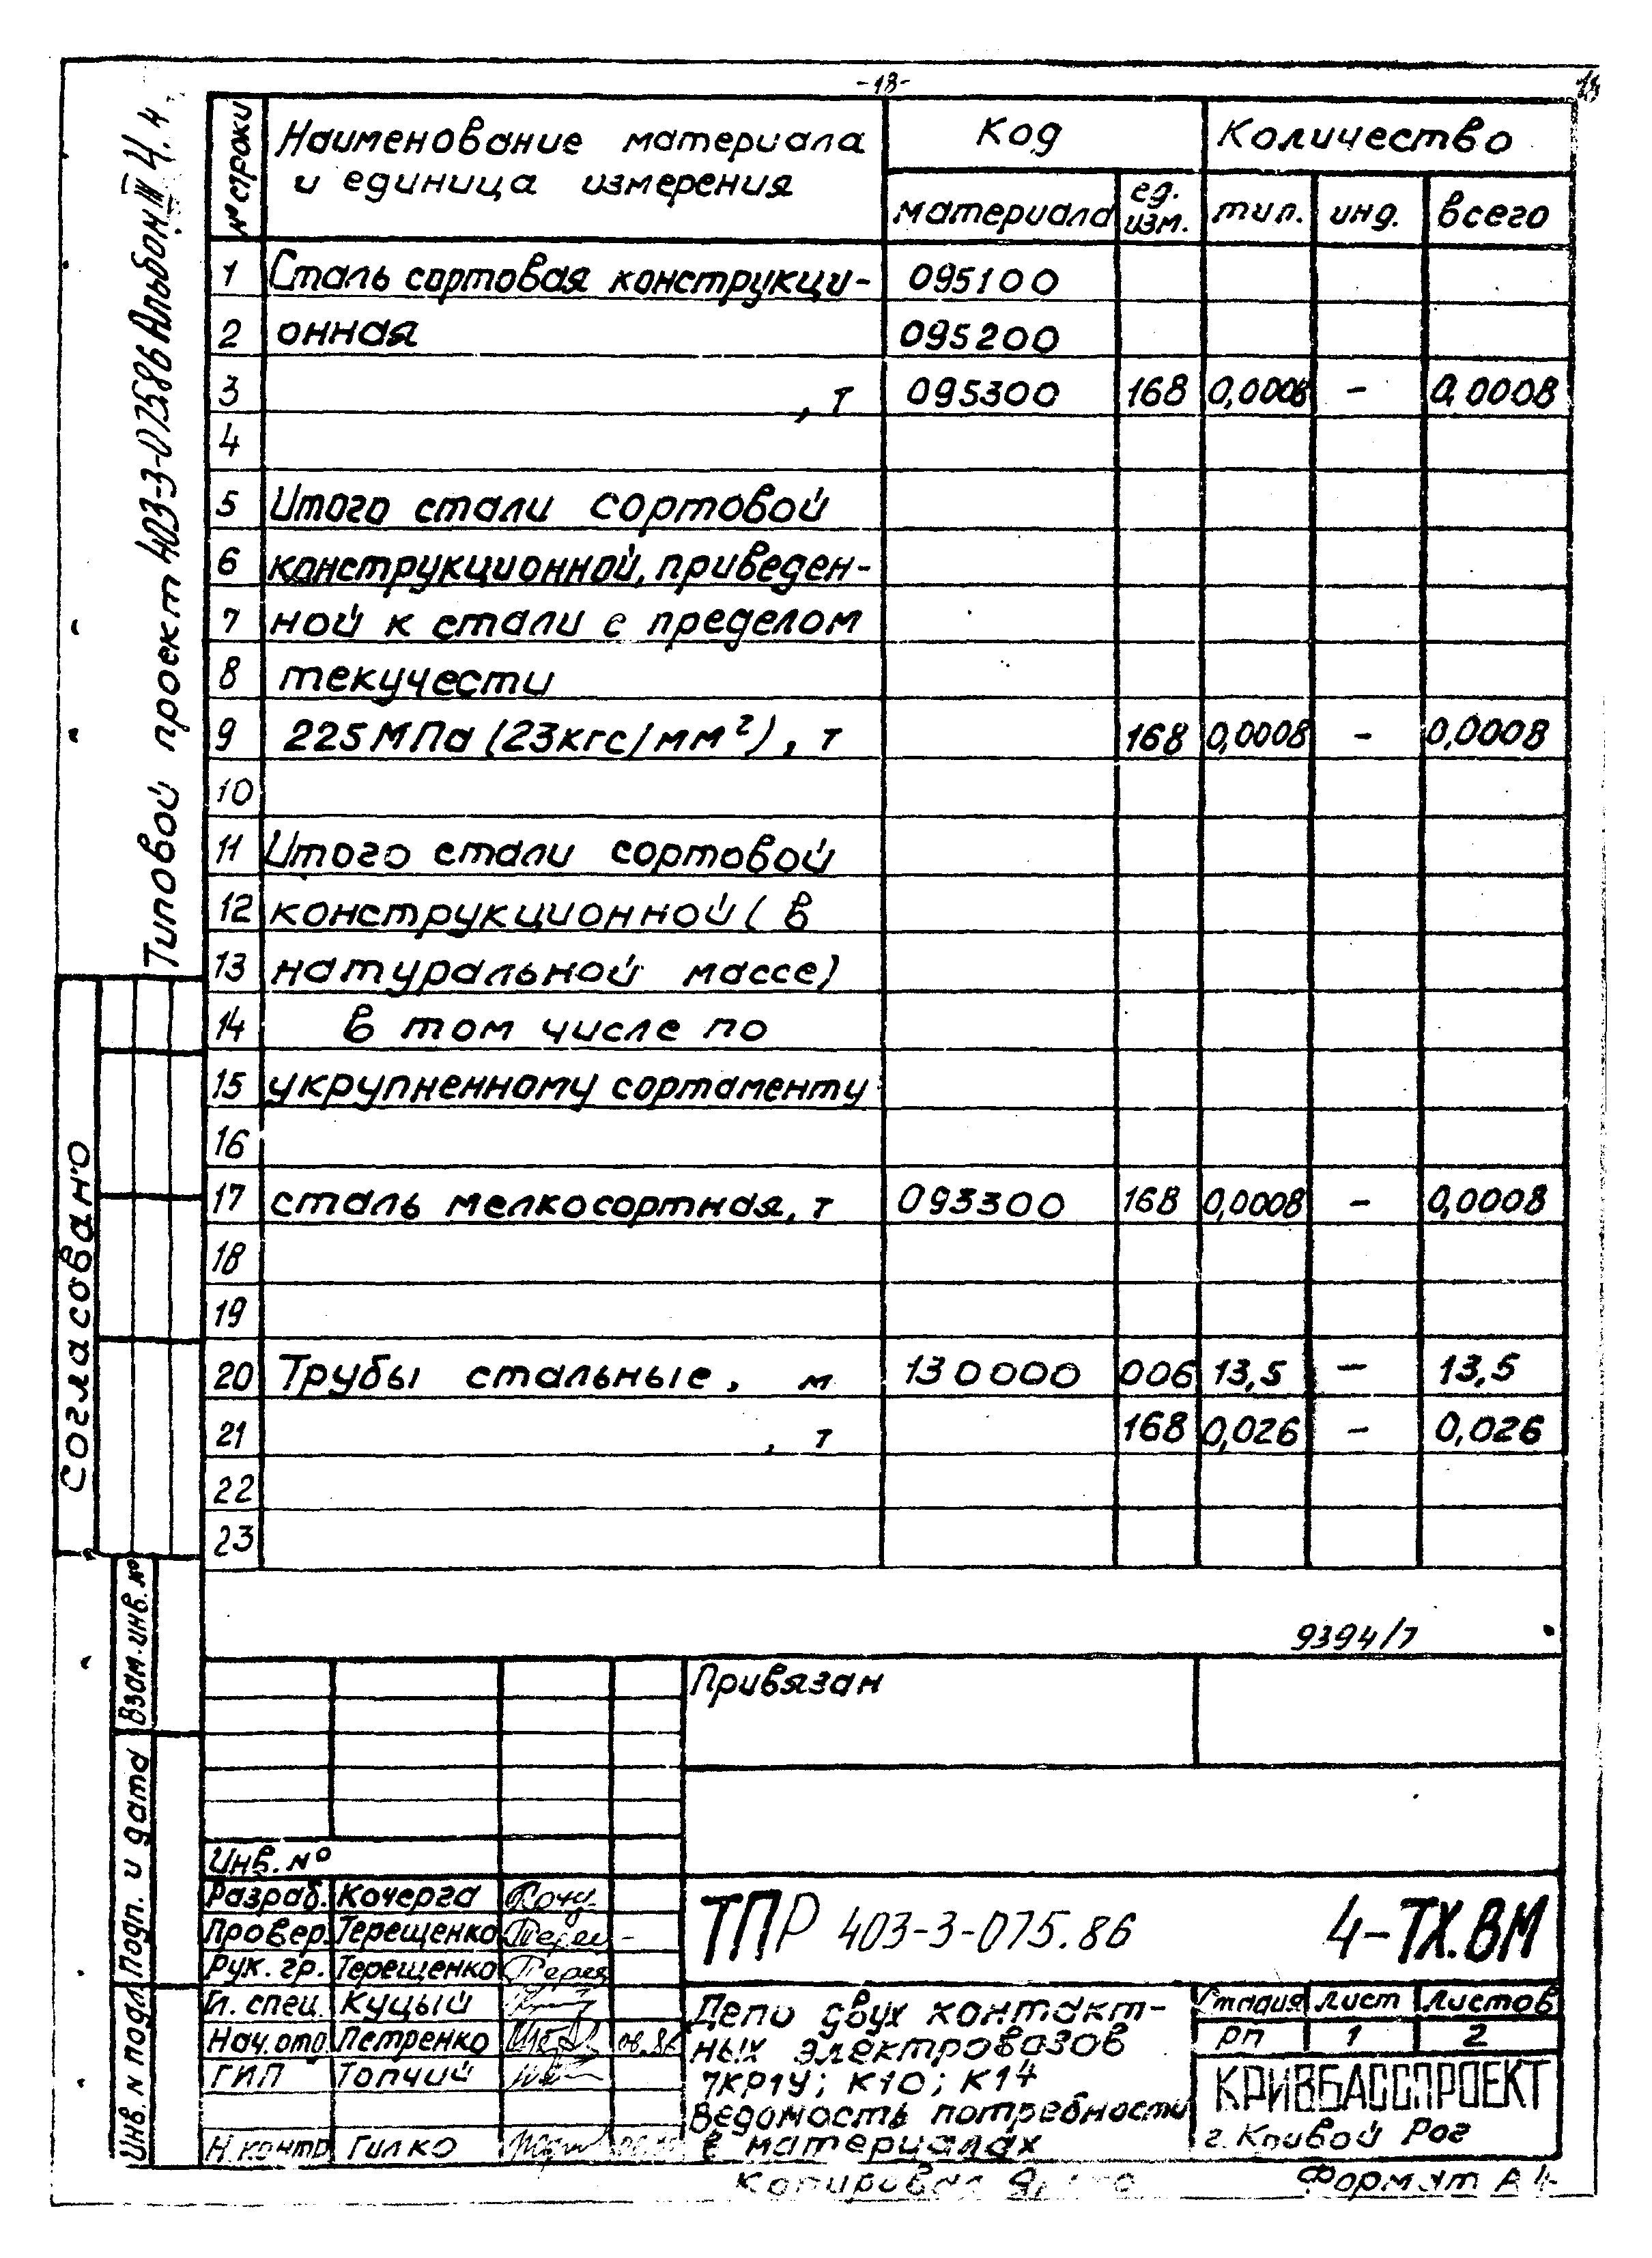 -18-
18
Типовой проект 403-3-075.86 Альбом III ч. 4.
№ строки
Наименование материала
и единица измерения
Код
Количество
материала
ед.
изм.
тип.
инд.
всего
1 Сталь сортовая конструкци- 095100
2 онная 095200
3 , т 095300 168 0,0008 - 0,0008
4
5 Итого стали сортовой
6 конструкционной, приведен-
7 ной к стали с пределом
8 текучести
9 225МПа (23кгс/мм²), т 168 0,0008 - 0,0008
10
11 Итого стали сортовой
12 конструкционной (в
13 натуральной массе)
14 в том числе по
15 укрупненному сортаменту
16
17 сталь мелкосортная, т 093300 168 0,0008 - 0,0008
18
19
20 Трубы стальные, м 130000 006 13,5 - 13,5
21 , т 168 0,026 - 0,026
22
23
Согласовано
Взам. инв. №
Подп. и дата
Инв. N подл
9394/7
Привязан
Инв. №
Разраб. Кочерга
Провер. Терещенко
Рук. гр. Терещенко
Гл. спец. Куцый
Нач. отд. Петренко 08.86
ГИП Топчий
Н. контр Гилко
ТПР 403-3-075.86 4-ТХ.ВМ
Депо двух контакт-
ных электровозов
7КР1У; К10; К14
Ведомость потребности
в материалах
Стадия Лист Листов
РП 1 2
КРИВБАССПРОЕКТ
г. Кривой Рог
Копировал
Формат А4